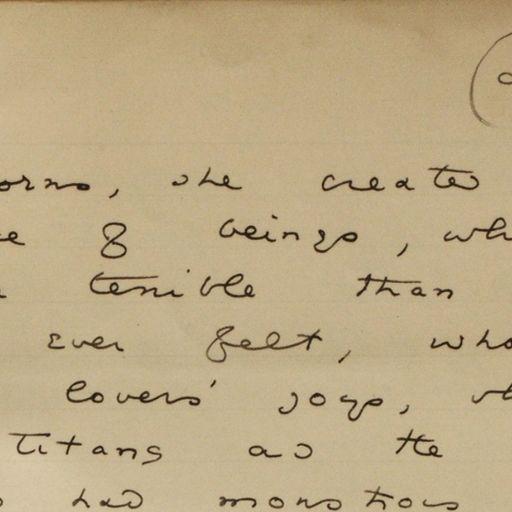 orns, she created
of beings, wh
terrible than
ever felt, who
lovers' joys,
Titans as the
had monstrous